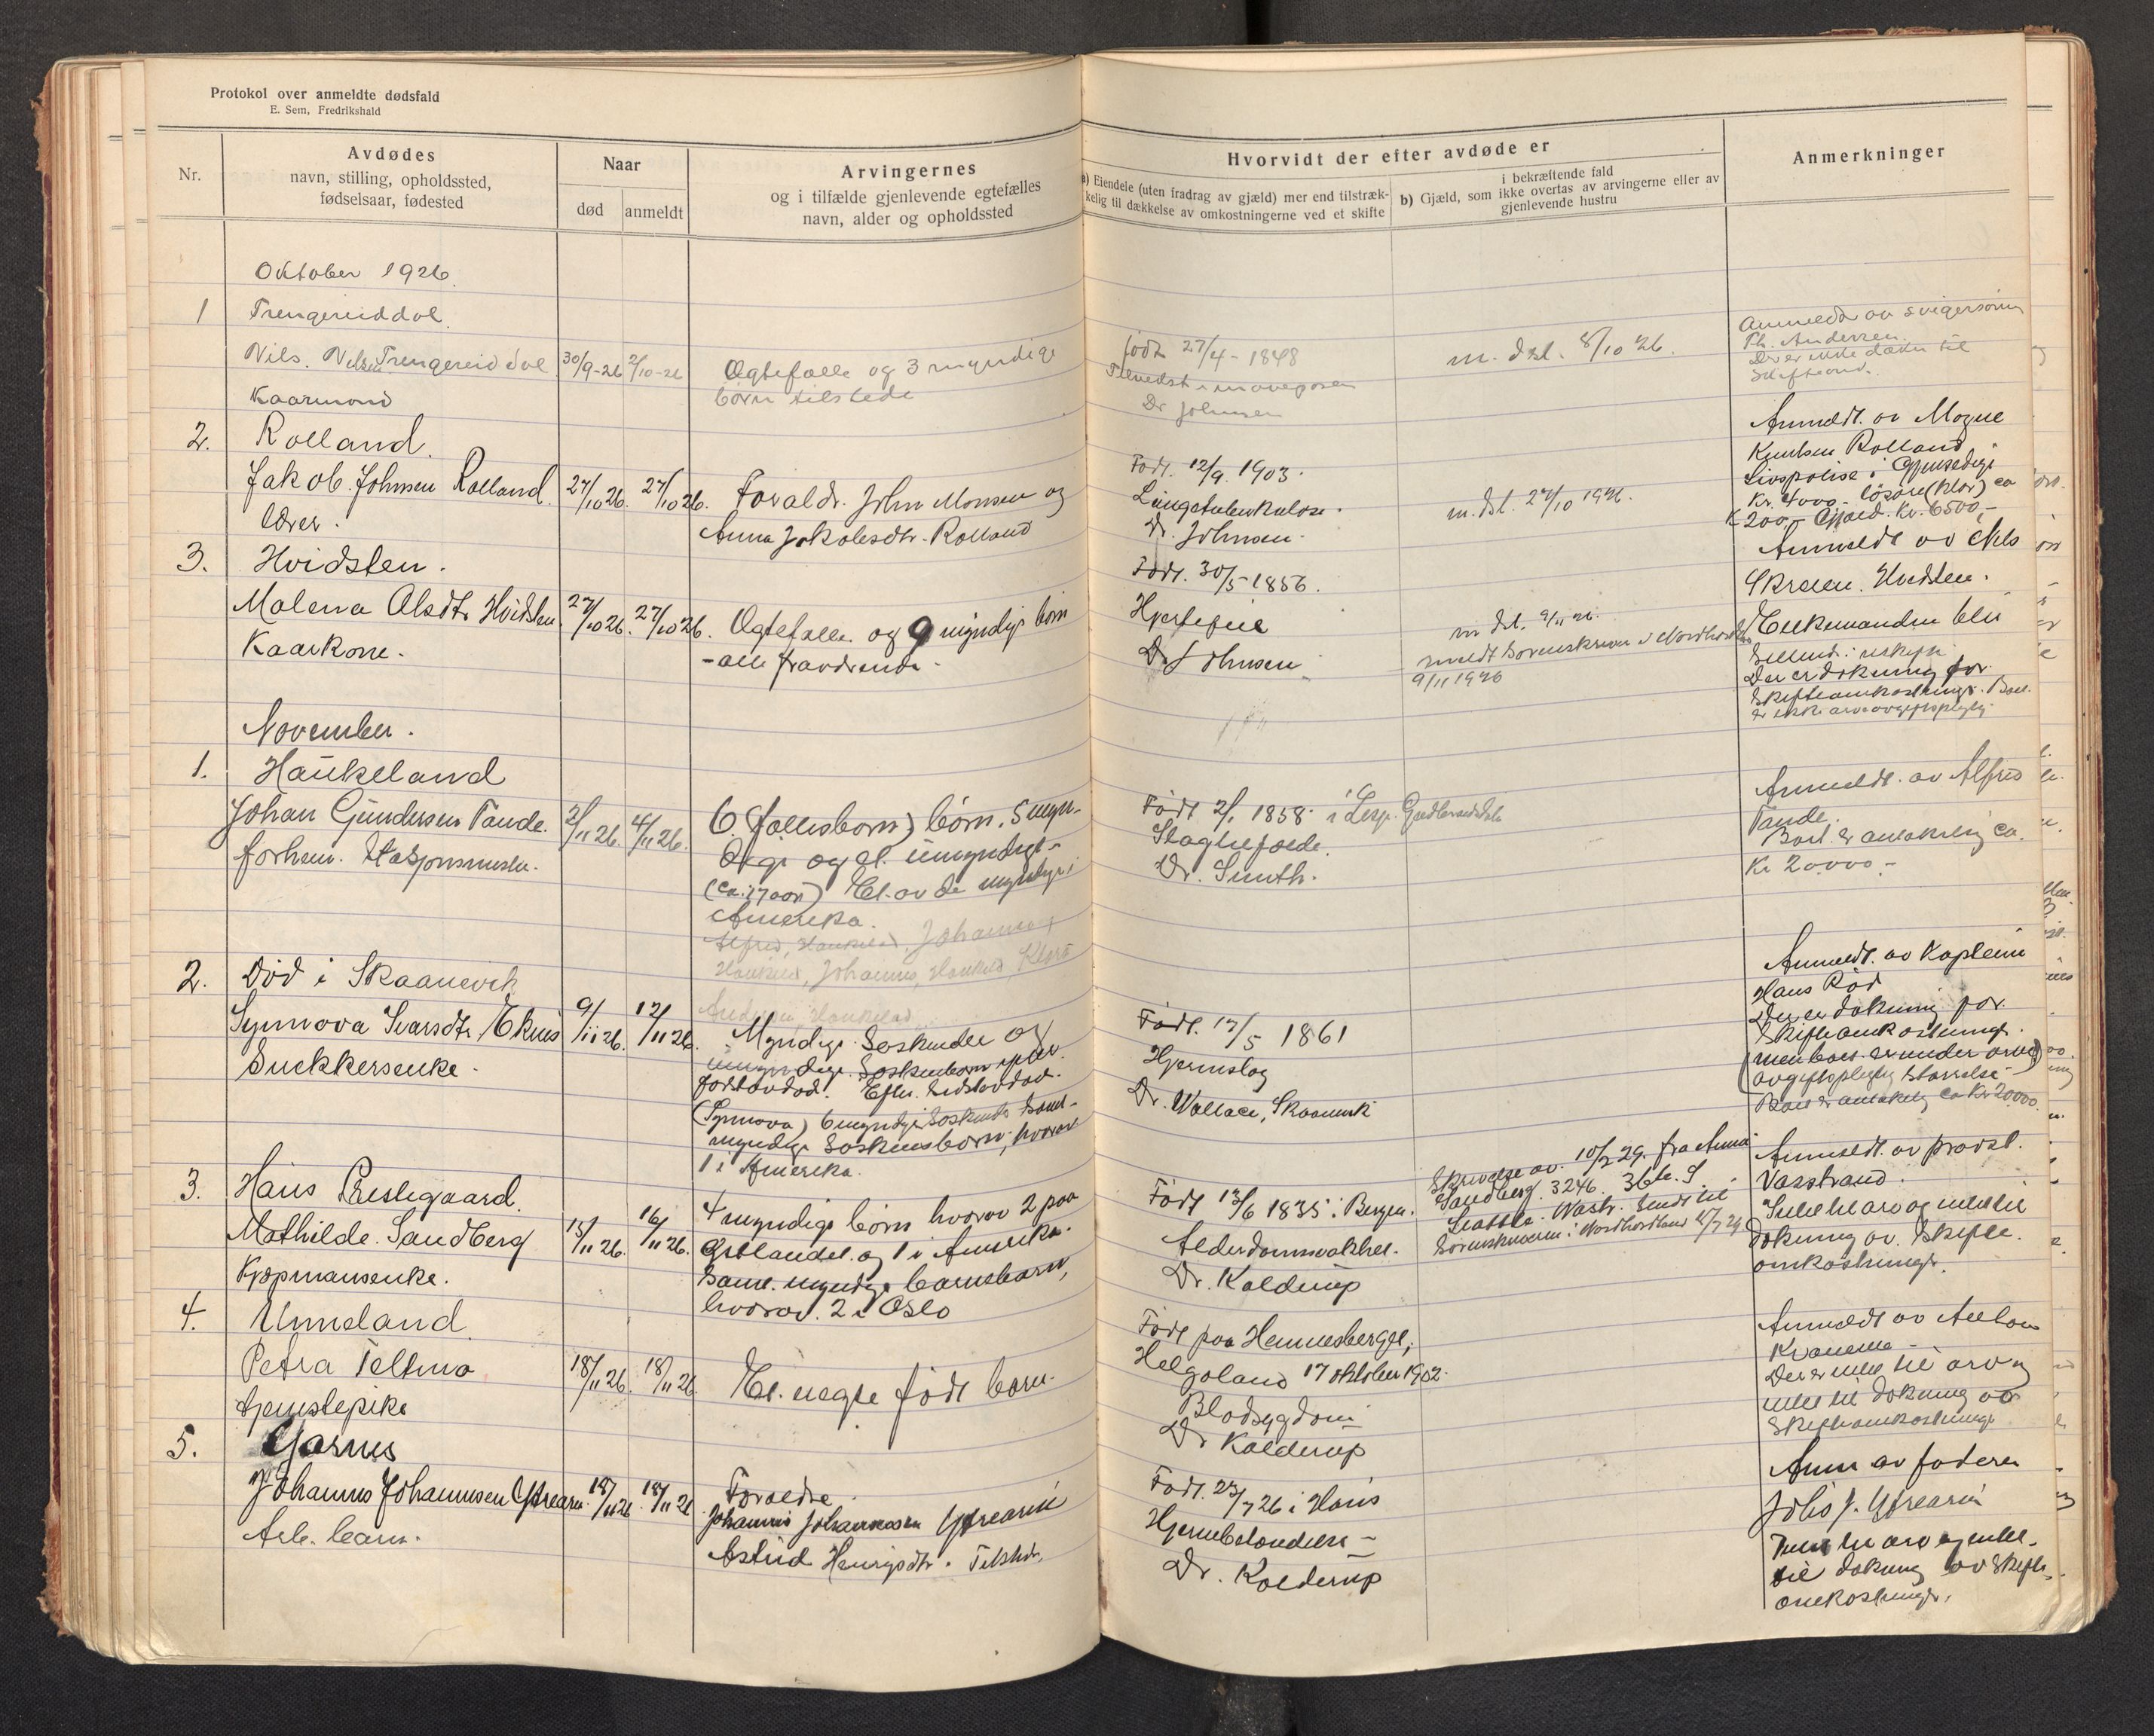 Protokol over anmeldte dødsfald
E. Sem, Fredrikshald
Nr.
Avdødes
navn, stilling, opholdssted,
fødselsaar, fødested
Naar
død
anmeldt
Arvingernes
og i tilfælde gjenlevende egtefælles
navn, alder og opholdssted
Hvorvidt der efter avdøde er
a) Eiendele (uten fradrag av gjæld) mer end tilstræk-
kelig til dækkelse av omkostningerne ved et skifte
i bekræftende fald
b) Gjæld, som ikke overtas av arvingerne eller av
gjenlevende hustru
Anmerkninger
Oktober 1926.
1
Trengereiddal.
Nils. Nilsen Trengereiddal
Kaarmand
30/9-26
2/10-26
Ægtefælle og 3 myndige
børn tilstede
født 27/4-1848
Dr Johnsen
m. dst. 8/10 26.
Anmeldt av svigersønn
Ph. Andersen.
Der er ikke dækn til
Skifteomk.
2.
Rolland.
Jakob. Johnsen Rolland.
lærer.
27/10 26.
27/10 26.
Foraldr. John Monsen og
Anna Jakobsdtr. Rolland
Født. 12/9. 1903.
Lungetuberkulose.
Dr. Johnsen.
m. dst. 27/10 1926.
Anmeldt. av Mogne
Knutsen Rolland.
Livspolise i Gjensidige
Kr. 4000 - løsøre (klær) ca
K 200,- Gjæld. Kr. 6500,-
3.
Hvidsten.
Malena Olsdtr Hvidsten.
Kaarkone.
27/10 26.
27/10 26.
Ægtefælle og 9 myndige børn
- alle fraværende -
Født. 30/5-1856.
Hjertefeil
Dr Johnsen
m dst. 9/11 26.
9/11 1926
Anmeldt av Nils
Hvidsten.
Enkemanden blir
sittend. i uskifte
Der er dækning for
Skifteomkostninger. Boet
er ikke arveavgiftspligtig.
November.
1.
Haukeland
Johan Gundersen Tande.
forhen. Stasjonsmester.
2/11 26.
4/11 26.
6. (fællesbørn) børn. 5 myn-
dige og et. umyndigt -
(ca. 17 aar) Et. av de myndige i
Amerika.
Født 2/1 1858. i Lesja. Gudbrandsdalen
Slagtilfælde.
Dr. Smith.
Anmeldt. av Alfred
Tande.
Boet. er antakelig ca.
Kr 20.000.-
2.
Død i Skaanevik
Synnova Ivarsdtr
Snekkerenke.
9/11 26.
12/11 26.
Myndige Søskende og
umyndige. Søskenbørn efter
førstavdøde. Efter. sidstavdøde.
(Synnova) 6 myndige Søskende samt -
myndige Søskensbørn, hvorav
1 i Amerika.
Født. 17/5 1861
Hjerneslag
Dr. Wallace, Skaanevik
Anmeldt. av Kaptein
Hans Rød
Der er dækning for.
Skifteomkostninger.
(men boet er under arve-)
avgiftspligtig størrelse -
Boet er antakelig ca kr 20000.
3.
Haus Prestegaard.
Mathilde. Sandberg
Kjøpmansenke.
15/11 26.
16/11 26.
4 myndige børn hvorav 2 paa
Østlandet. og 1 i Amerika.
Samt. myndige barnebarn,
hvorav. 2 i Oslo
Født 13/6 1835 i Bergen.
Alderdomssvakhet.
Dr. Kolderup
Skrivelse av. 10/2 29. fra Anna
Sandberg. 3246. 36te. S.
Seattle. Wash. sendt til
Sorenskriveren i Nordhordland
Anmeldt. av provst.
Vasstrand.
Intet til arv og intet til
dækning av. skifte.
omkostninger.
4.
Unneland.
Petra Teltmo
tjenstepike
18/11 26.
18/11 26
Et. uegte født barn.
Født paa Hennesberget,
Helgoland 17 oktober 1902.
Blodsygdom
Dr Kolderup
Anmeldt av Anton
Kvamme -
Der er intet til arv og
intet til dækning av
Skifteomkostninger
5.
Garnes
Johannes Johannesen Ytrearne.
Arb. barn.
18/11 26
18/11 26
Forældre.
Johannes Johannessen Ytrearne
Astrid Henriksdtr.
Født. 23/7 26 i Haus
Hjernebetændelse -
Dr. Kolderup
Anm av faderen
Johs J. Ytrearne
Intet til arv og intet.
til dækning av skifte-
omkostninger.